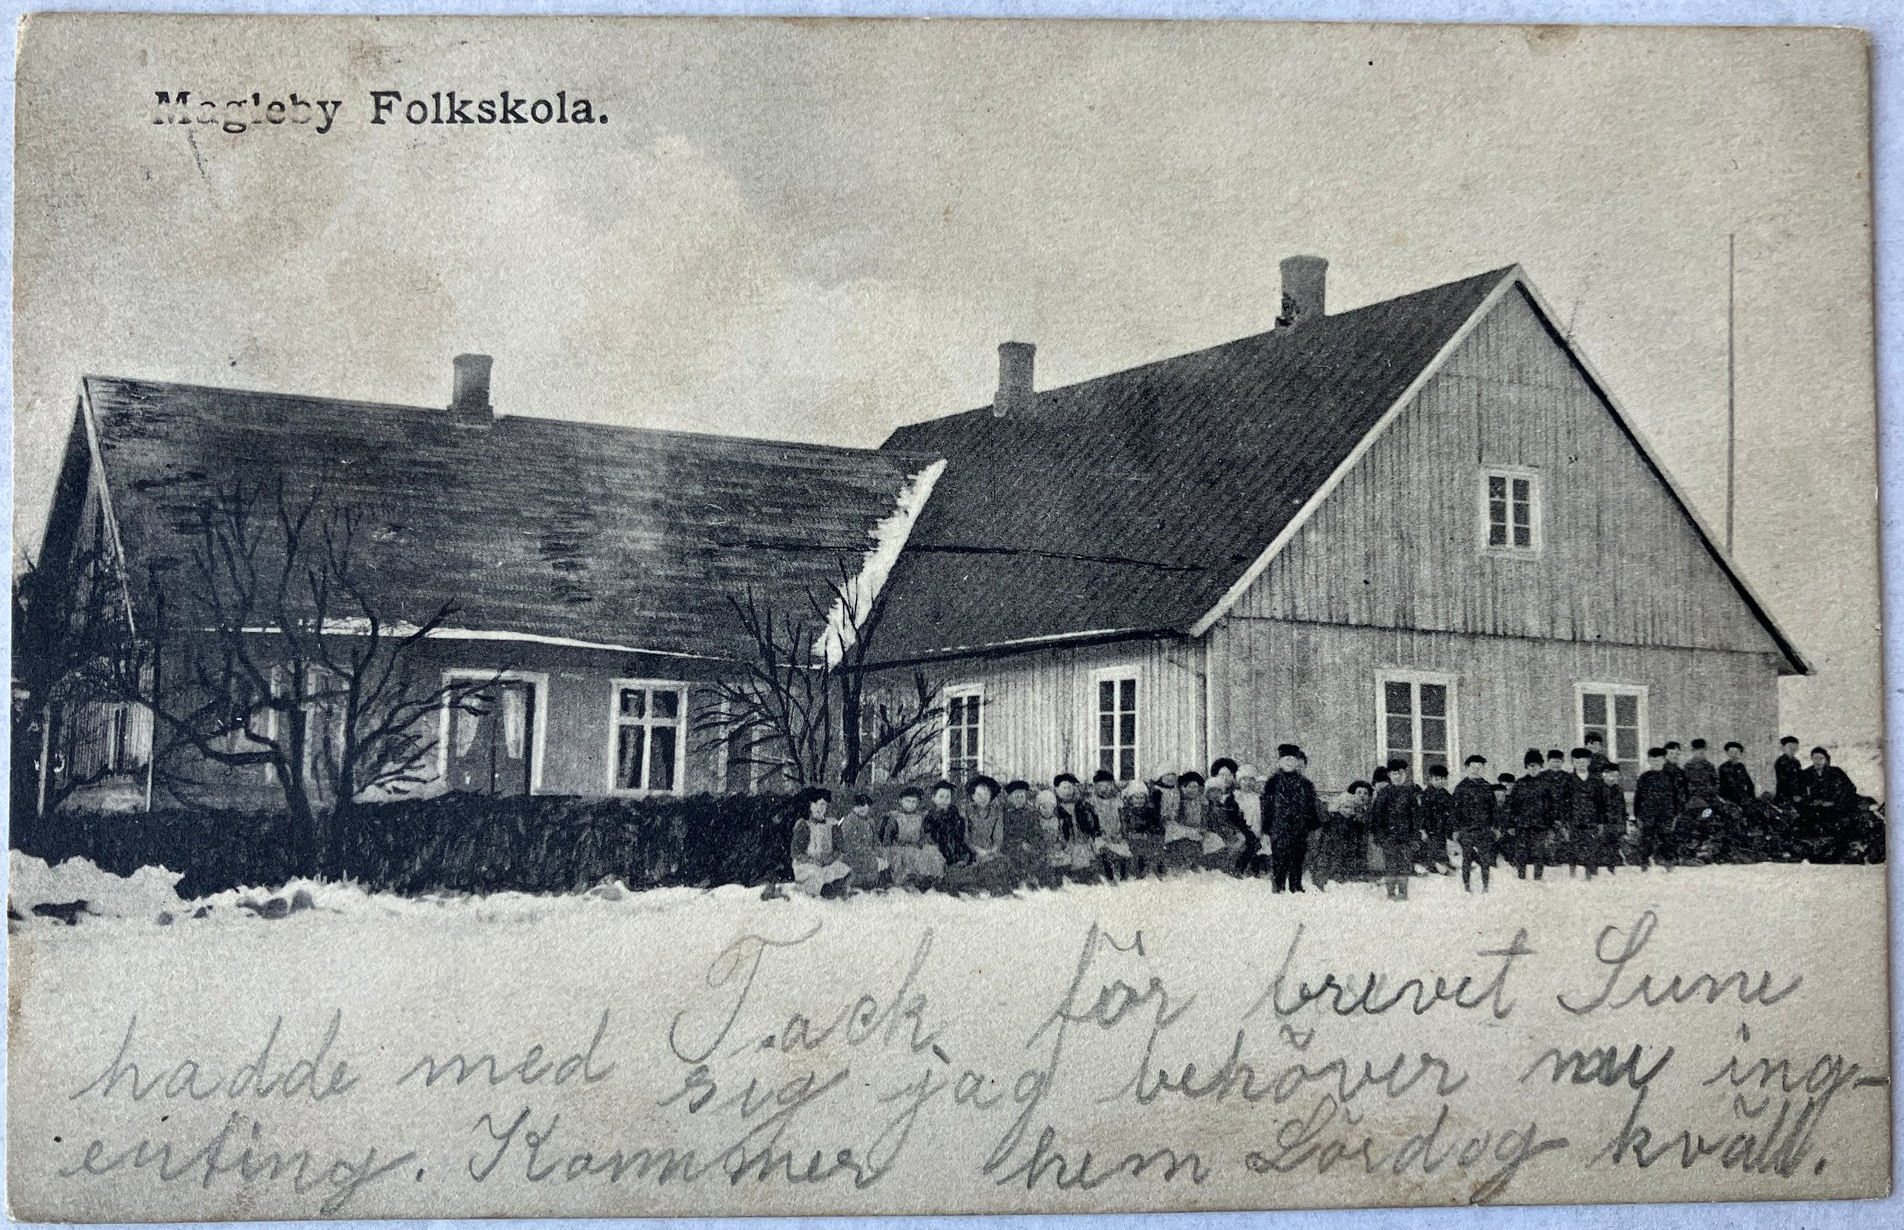 Magleby Folkskola.
Tack för brevet Sune
hadde med sig jag behöver nu ing-
enting. Kommer hem Lördag kväll.